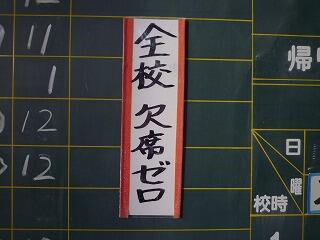 全校 欠席ゼロ
11
1
12
12
帰
日
曜
校時